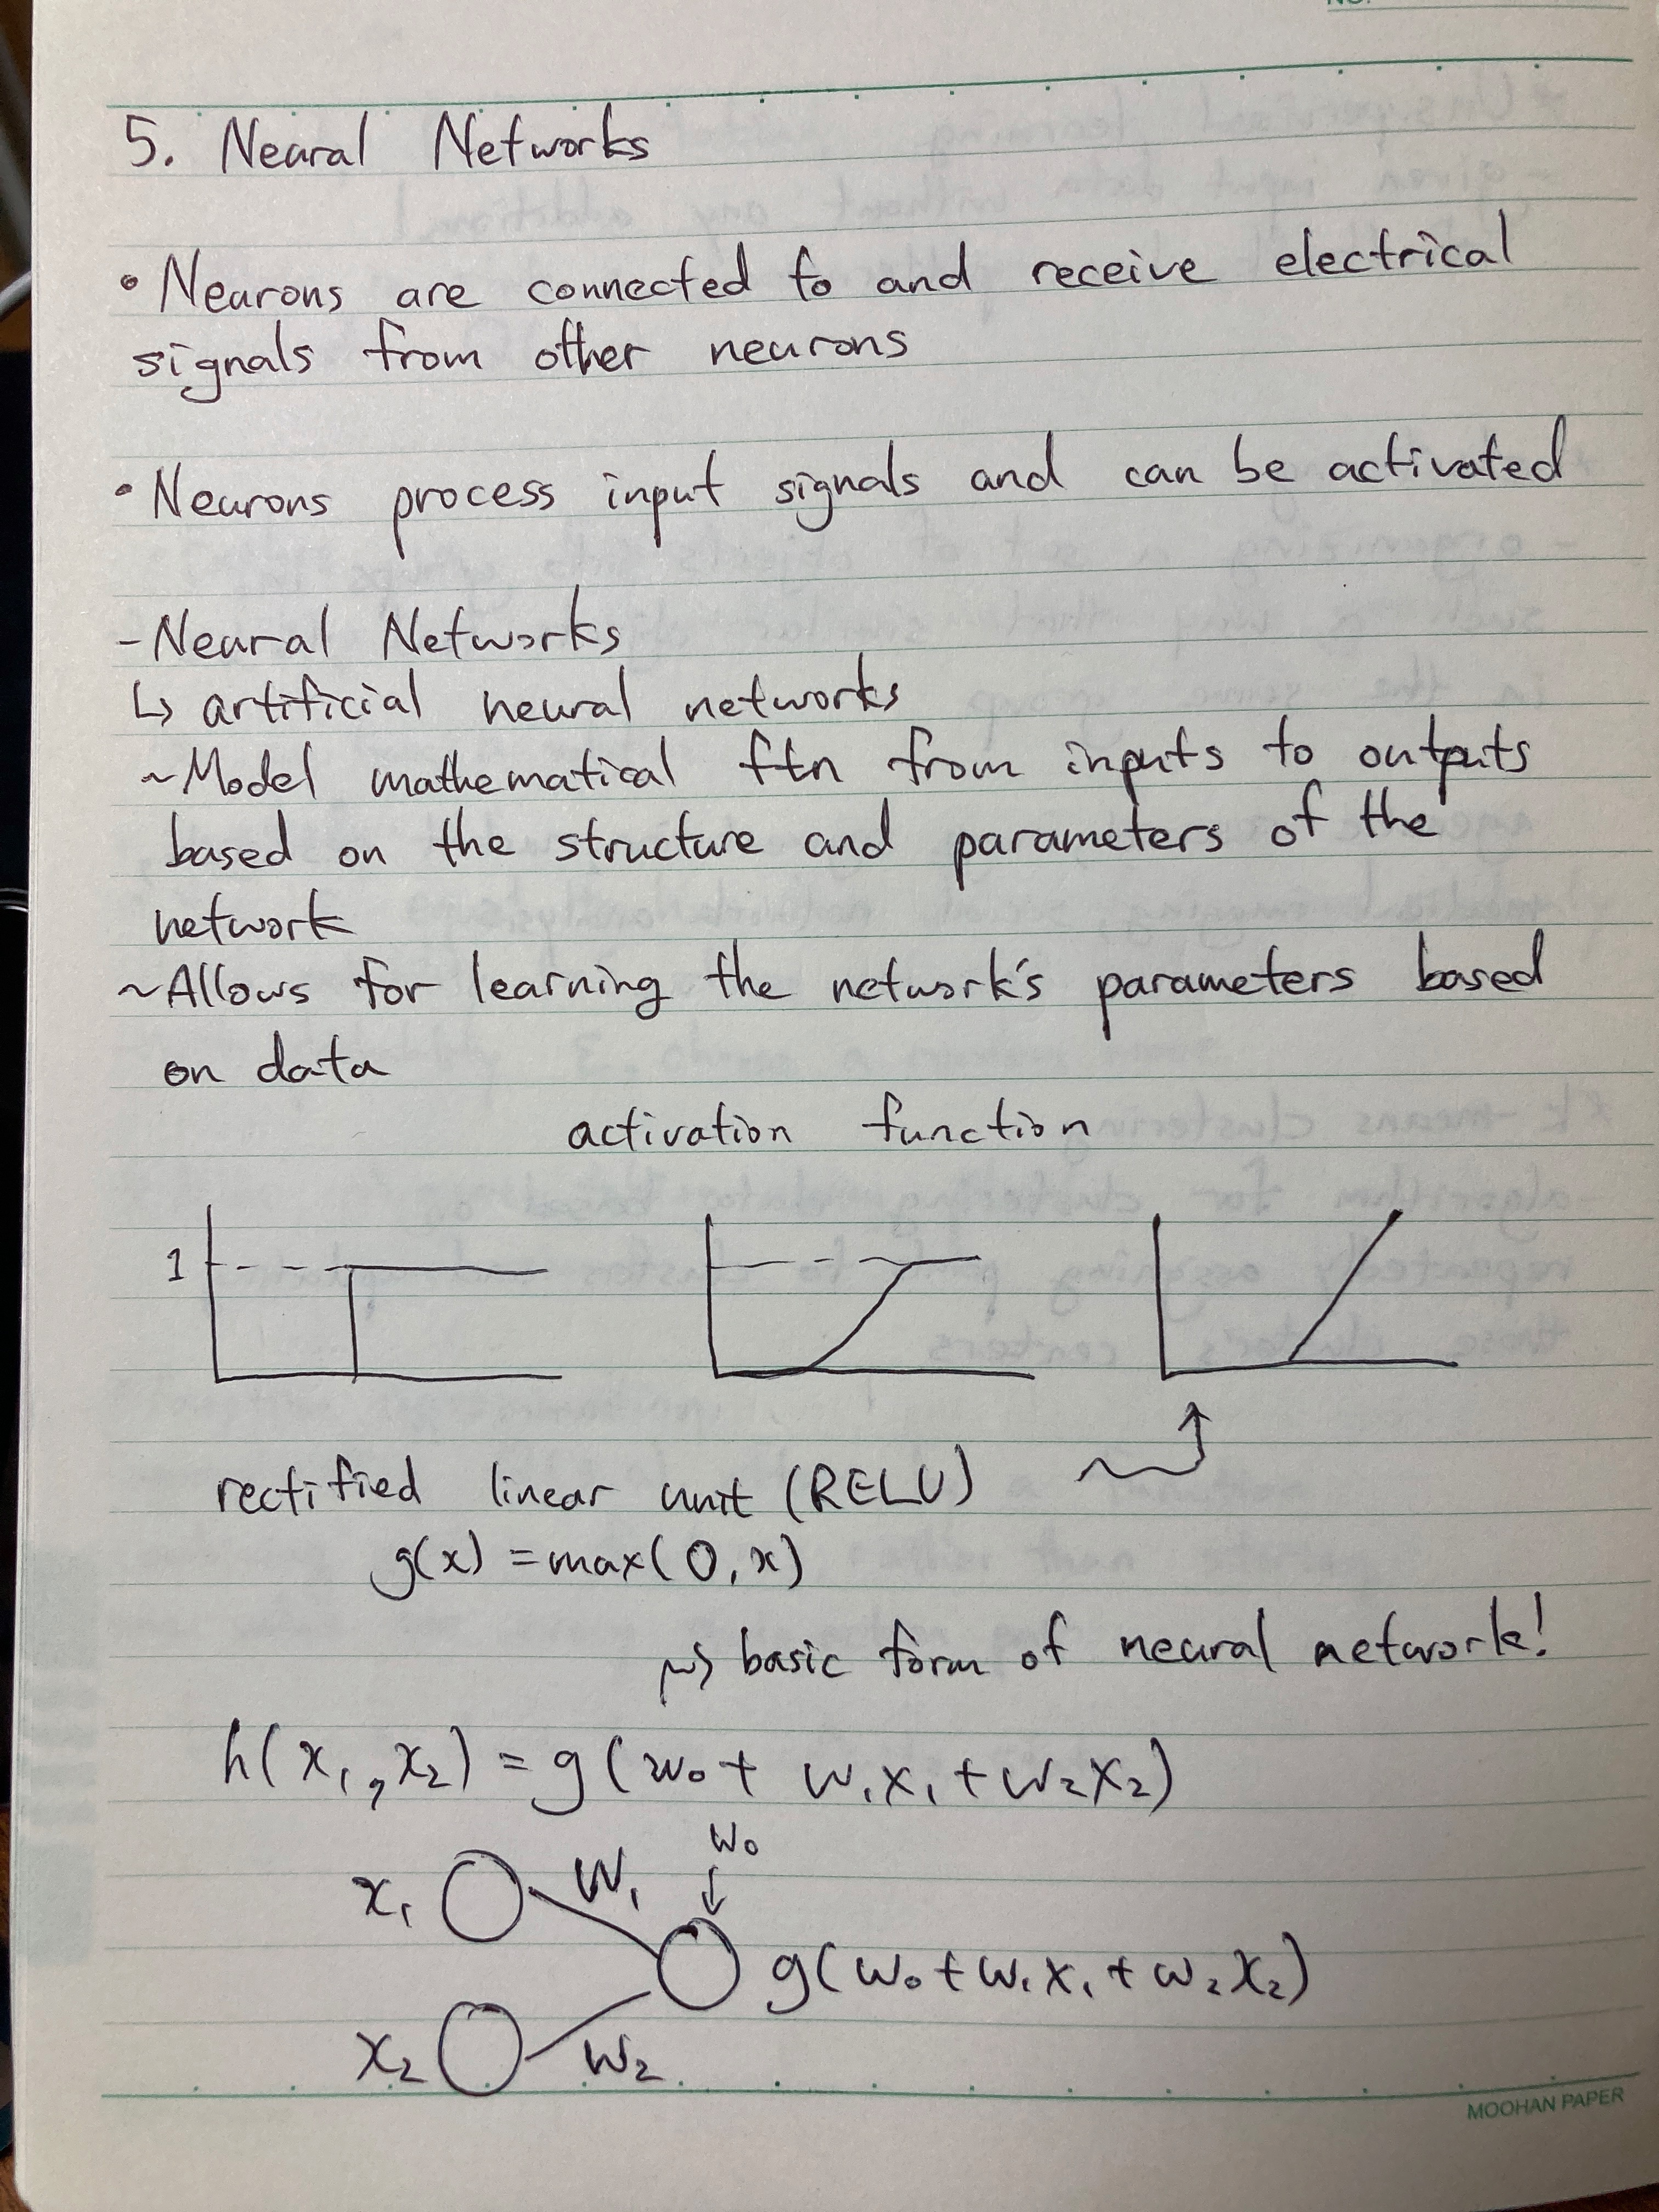 5. Neural Networks
• Neurons are connected to and receive electrical
signals from other neurons
• Neurons process input signals and can be activated
- Neural Networks
↳ artificial neural networks
~ Model mathematical ftn from inputs to outputs
based on the structure and parameters of the
network
~ Allows for learning the network's parameters based
on data
activation function
1
rectified linear unit (RELU)
g(x) = max(0, x)
⇝ basic form of neural network!
h(x₁, x₂) = g(w₀ + w₁x₁ + w₂x₂)
w₀
x₁ w₁
g(w₀ + w₁x₁ + w₂x₂)
x₂ w₂
MOOHAN PAPER